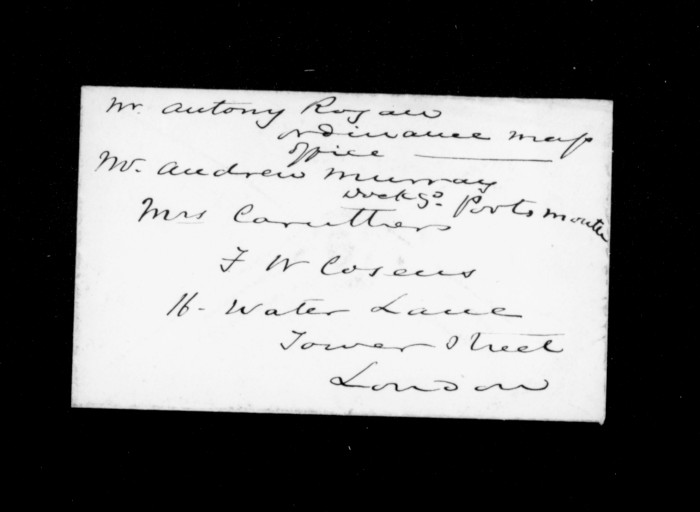 Mr. Antony Rogan
ordinance map
office
Mr. Andrew Murray
Dockyd. Portsmouth
Mrs Caruthers
F W Cosens
16 - Water Lane
Tower Street
London